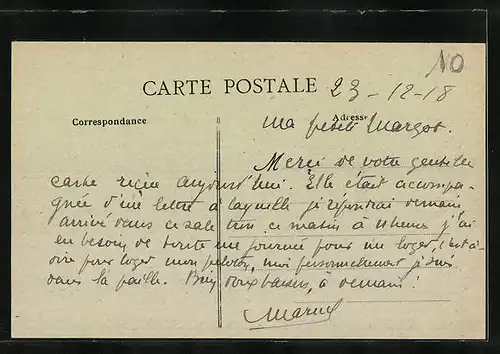 NO
CARTE POSTALE
23-12-18
Correspondance
Adresse
Ma petite Margot.
Merci de votre gentille
carte reçue aujourd'hui. Elle était accompa-
gnée d'une lettre à laquelle je répondrai demain
arrivé dans ce sale trou ce matin à heures j'ai
eu besoin de toute une journée pour me loger, c'est à-
dire pour loger mon peloton, moi personnellement je suis
dans la paille. Bien doux baisers, à demain!
Marcel